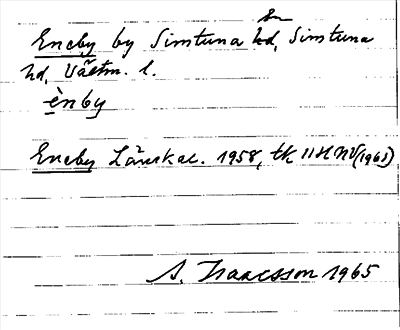 sn
Eneby by Simtuna hd, Simtuna
hd, Västm. l.
ènby
Eneby Länskal. 1958, tk 11H NV (1965)
S. Isaacsson 1965